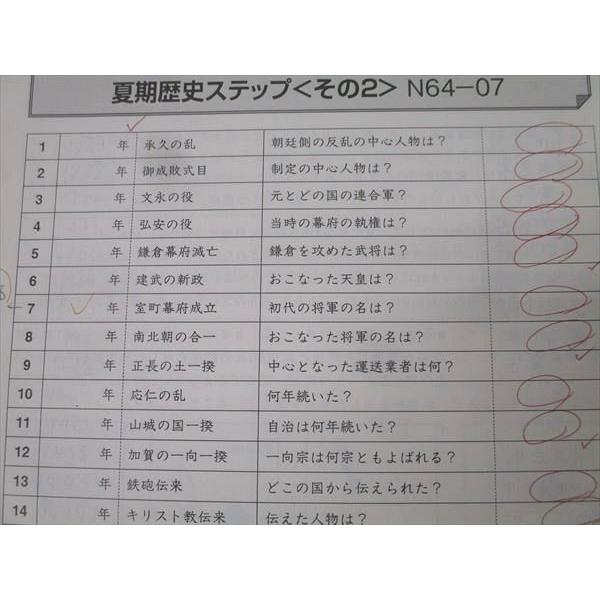 夏期歴史ステップ<その2> N64-07
1 年 承久の乱 朝廷側の反乱の中心人物は?
2 年 御成敗式目 制定の中心人物は?
3 年 文永の役 元とどの国の連合軍?
4 年 弘安の役 当時の幕府の執権は?
5 年 鎌倉幕府滅亡 鎌倉を攻めた武将は?
6 年 建武の新政 おこなった天皇は?
7 年 室町幕府成立 初代の将軍の名は?
8 年 南北朝の合一 おこなった将軍の名は?
9 年 正長の土一揆 中心となった運送業者は何?
10 年 応仁の乱 何年続いた?
11 年 山城の国一揆 自治は何年続いた?
12 年 加賀の一向一揆 一向宗は何宗ともよばれる?
13 年 鉄砲伝来 どこの国から伝えられた?
14 年 キリスト教伝来 伝えた人物は?